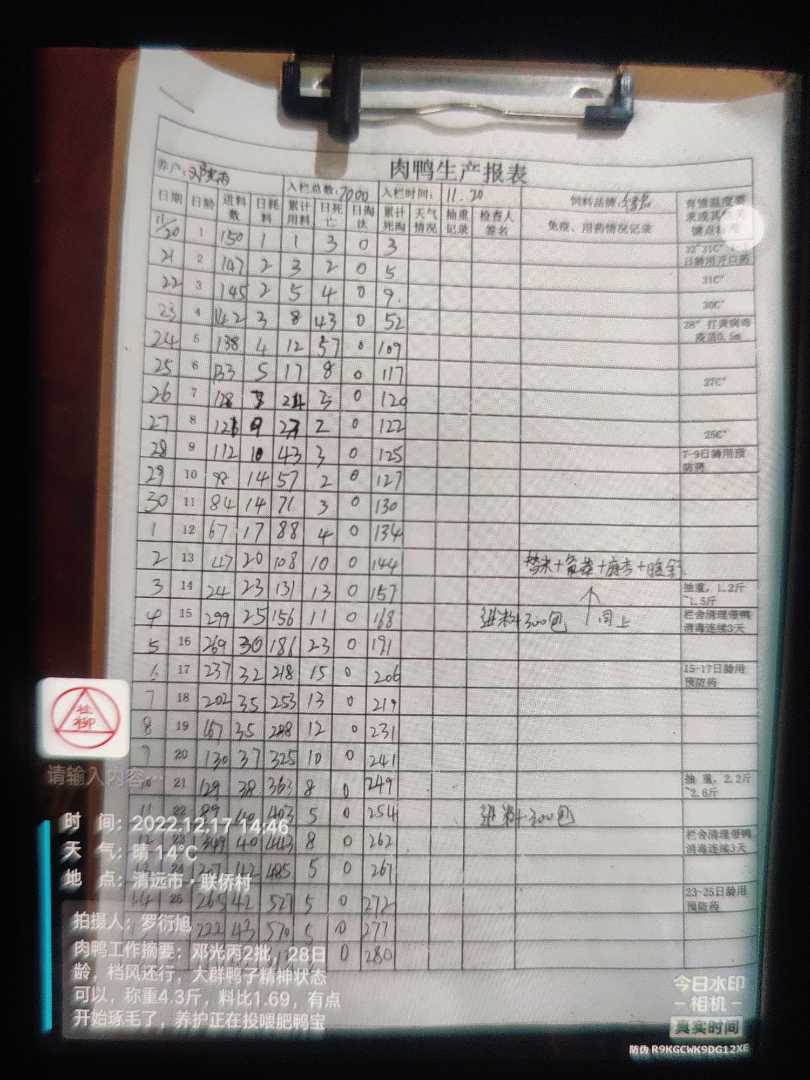 肉鸭生产报表
养户: 入栏总数: 7000 入栏时间: 11.20 饲料品牌:
日期 日龄 进料数 日耗料 累计用料 日死亡 日淘汰 累计死淘 天气情况 抽重记录 检查人签名 免疫、用药情况记录
11/20 1 150 1 1 3 0 3
21 2 147 2 3 2 0 5 31C°
22 3 145 2 5 4 0 9 30C°
23 4 142 3 8 43 0 52
24 5 138 4 12 57 0 109
25 6 133 5 17 8 0 117 27C°
26 7 3 0 120
27 8 2 0 122 25C°
28 9 112 10 43 3 0 125 7-9日龄用预防药
29 10 14 57 2 0 127
30 11 84 14 71 3 0 130
1 12 67 17 88 4 0 134
2 13 47 20 108 10 0 144
3 14 24 23 131 13 0 157 抽重，1.2斤~1.5斤
4 15 299 25 156 11 0 168 进料300包 同上 栏舍清理带鸭消毒连续3天
5 16 269 30 186 23 0 191
6 17 237 32 218 15 0 206 15-17日龄用预防药
7 18 202 35 253 13 0 219
8 19 167 35 288 12 0 231
9 20 130 37 325 10 0 241
21 129 38 363 8 0 249 抽 重，2.2斤~2.6斤
11 22 89 40 403 5 0 254 进料300包
23 349 40 443 8 0 262 栏舍清理带鸭消毒连续3天
24 42 485 5 0 267
25 265 42 527 5 0 272 23-25日龄用预防药
222 43 570 5 0 277
0 280
桂柳
请输入内容…
时 间：2022.12.17 14:46
天 气：晴 14°C
地 点：清远市·联侨村
拍摄人：罗衍旭
肉鸭工作摘要：邓光丙2批，28日
龄，档风还行，大群鸭子精神状态
可以，称重4.3斤，料比1.69，有点
开始琢毛了，养护正在投喂肥鸭宝
今日水印
-相机-
真实时间
防伪 R9KGCWK9DG12XE